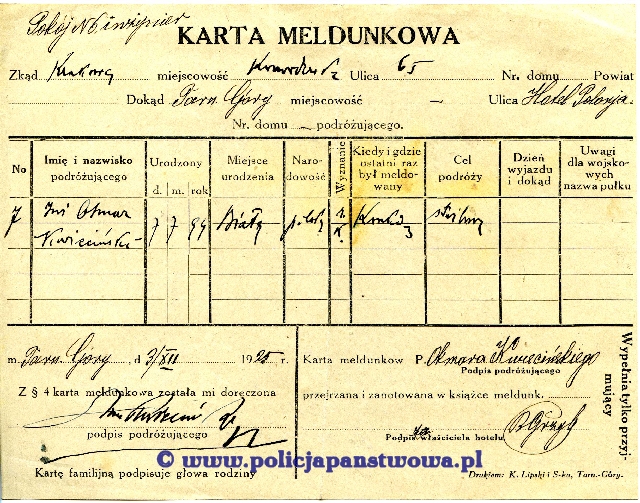 Pokój N6. inżynier
KARTA MELDUNKOWA
Zkąd Krakowa miejscowość Ulica 65 Nr. domu Powiat
Dokąd Tarn. Góry miejscowość — Ulica Hotel Polonja.
Nr. domu — podróżującego.
No
Imię i nazwisko podróżującego
Urodzony
d. m. rok
Miejsce urodzenia
Narodowość
Wyznanie
Kiedy i gdzie ostatni raz był meldowany
Cel podróży
Dzień wyjazdu i dokąd
Uwagi dla wojskowych nazwa pułku
7 Inż Otmar 7 7 99 Biała polska r. Kraków służbowy
Kwieciński k.
m. Tarn. Góry, d 3/XII 1925 r.
Z § 4 karta meldunkowa została mi doręczona
podpis podróżującego
Kartę familijną podpisuje głowa rodziny
Karta meldunkow P. Otmara Kwiecińskiego
Podpis podróżującego
przejrzana i zanotowana w książce meldunk.
Podpis za właściciela hotelu
Wypełnia tylko przyjmujący
© www.policjapanstwowa.pl
Drukiem: K. Lipski i S-ka, Tarn.-Góry.